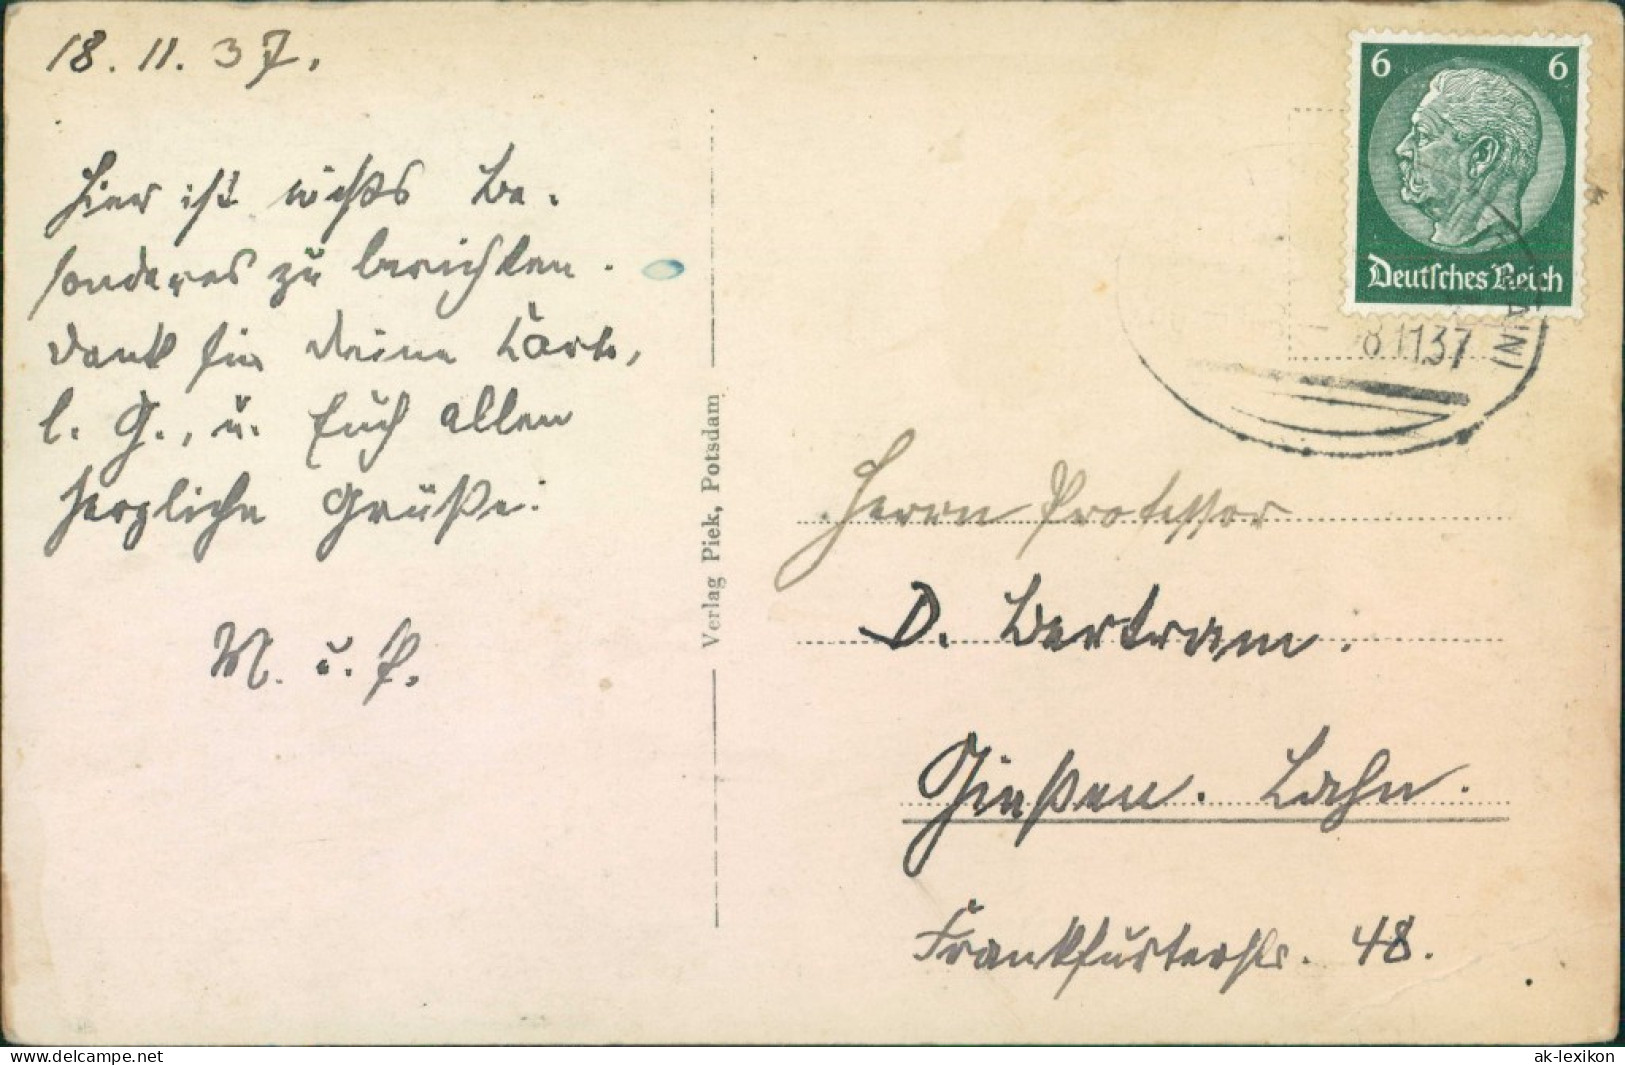 18. 11. 37.
Hier ist nichts Be-
sonderes zu berichten.
Dank für Deine Karte,
l. G., u. Euch allen
herzliche Grüße.
M. u. P.
Verlag Piek, Potsdam
6 6
Deutsches Reich
8.11.37
Herrn Professor
D. Bertram.
Gießen. Lahn.
Frankfurterstr. 48.
delcampe.net
ak-lexikon